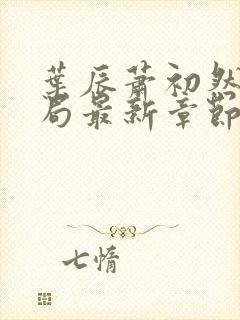 葉辰蕭初然
局最新章節
七惰